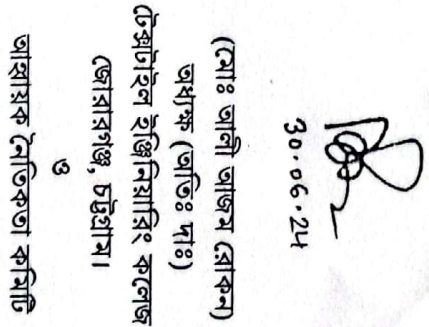 30.06.24
(মোঃ আলী আজম রোকন)
অধ্যক্ষ (অতিঃ দাঃ)
টেক্সটাইল ইঞ্জিনিয়ারিং কলেজ
জোরারগঞ্জ, চট্টগ্রাম।
ও
আহ্বায়ক নৈতিকতা কমিটি